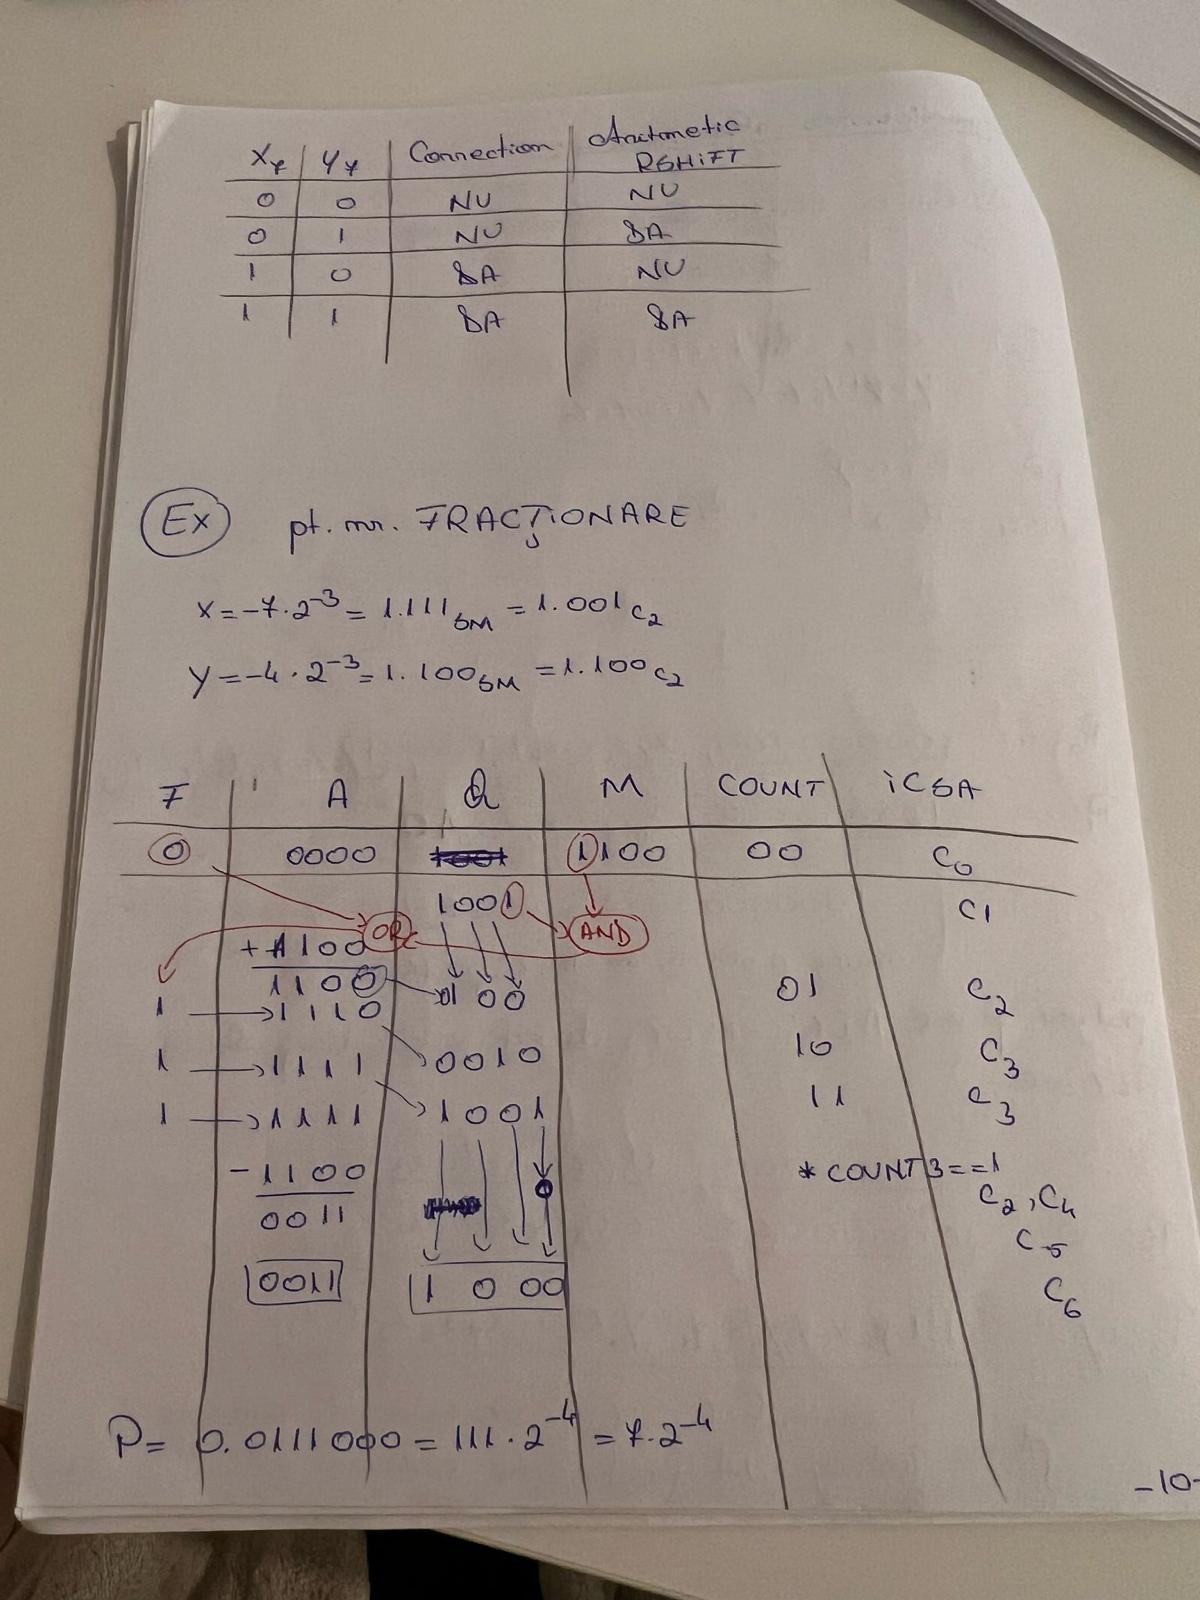 X7 Y7 Connection Aritmetic RSHIFT
0 0 NU NU
0 1 NU SA
1 0 SA NU
1 1 SA SA
Ex pt. nr. FRACȚIONARE
X=-7·2^-3 = 1.111 SM = 1.001 C2
Y=-4·2^-3 = 1.100 SM = 1.100 C2
F A Q M COUNT iCSA
0 0000 1100 00 C0
1001 C1
OR AND
+1100
1100 01 C2
1 1110 0100
1 1111 0010 10 C3
1 1111 1001 11 C3
-1100 * COUNT3==1
0011 C2, C4
C5
0011 1 0 00 C6
P= 0.0111000 = 111·2^-4 = 7·2^-4
-10-